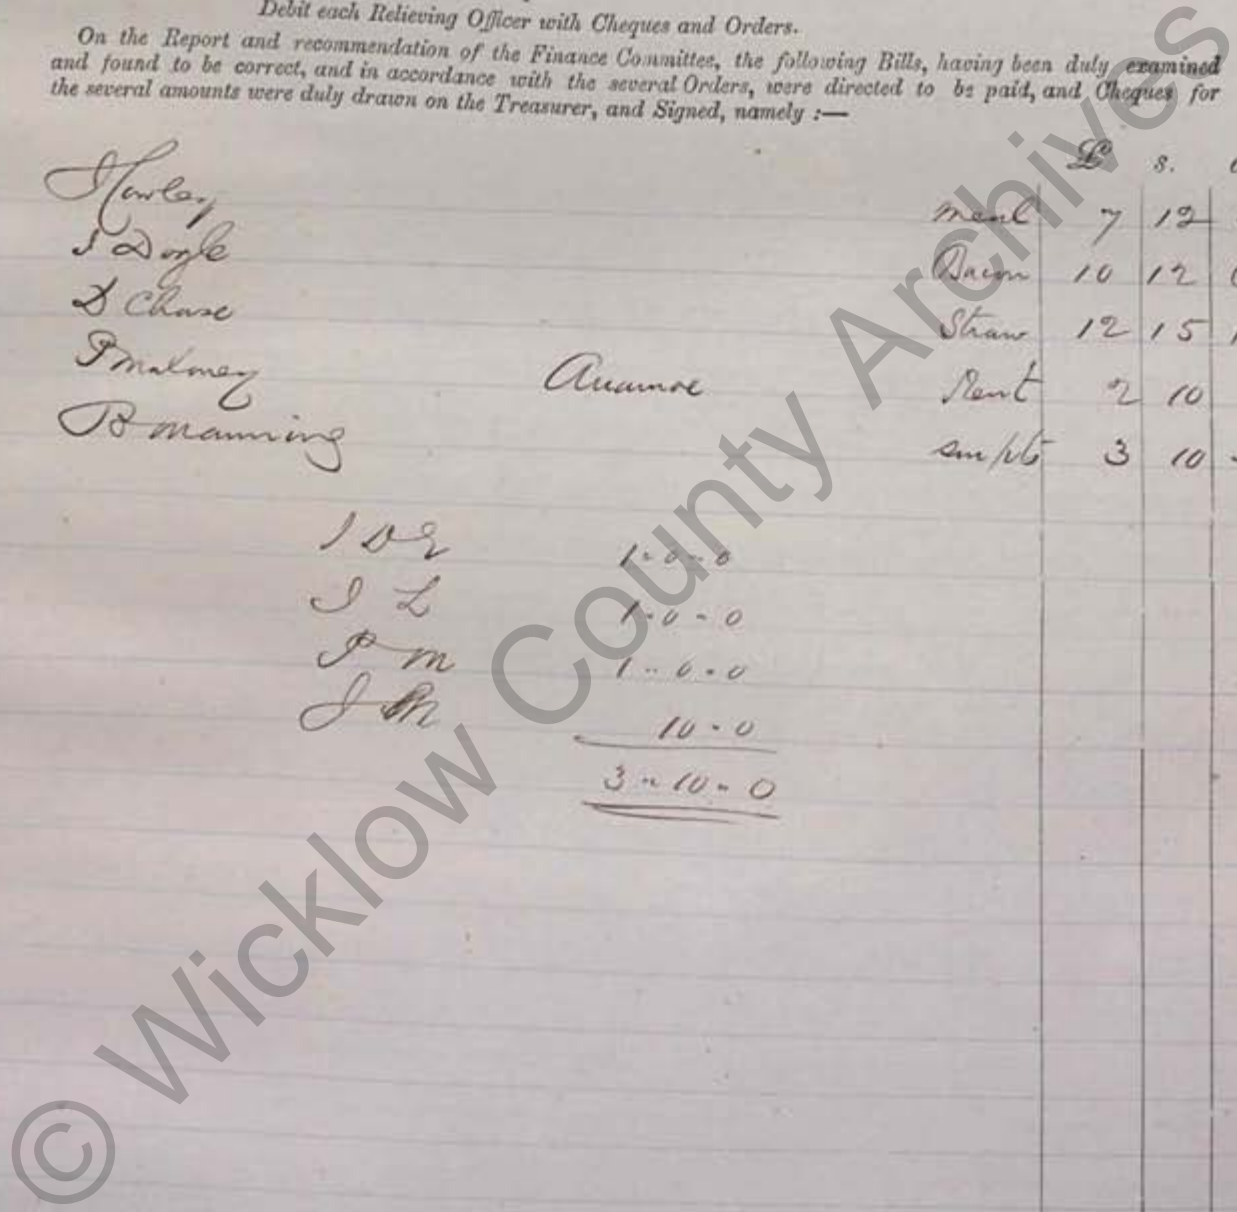 Debit each Relieving Officer with Cheques and Orders.
On the Report and recommendation of the Finance Committee, the following Bills, having been duly examined
and found to be correct, and in accordance with the several Orders, were directed to be paid, and Cheques for
the several amounts were duly drawn on the Treasurer, and Signed, namely :—
£ s.
Hawley Meal 7 12
J Doyle Bacon 10 12
D Chase Straw 12 15
P Maloney Rent 2 10
B Manning 3 10
1-0-0
J L 1-0-0
P M 1-0-0
J M 10-0
3-10-0
© Wicklow County Archives